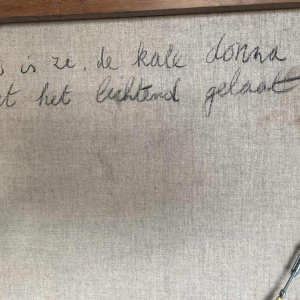 is ze. de kale donna
het lichtend gelaat